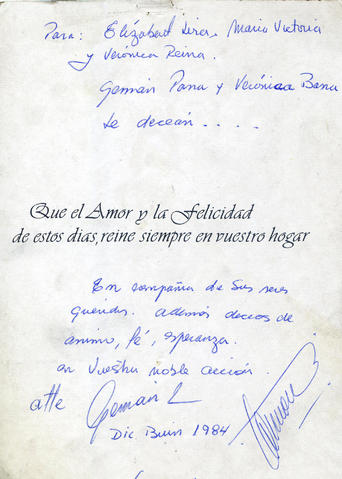 Para: Elizabeth Lira, Maria Victoria
y Verónica Reina.
Germán Pana y Verónica
Le decean . . . . .
Que el Amor y la Felicidad
de estos dias, reine siempre en vuestro hogar
En compañia de Sus seres
queridos. ademas deceos de
animo, fé, esperanza.
en Vuestra noble acción.
atte Germán L
Dic. 1984